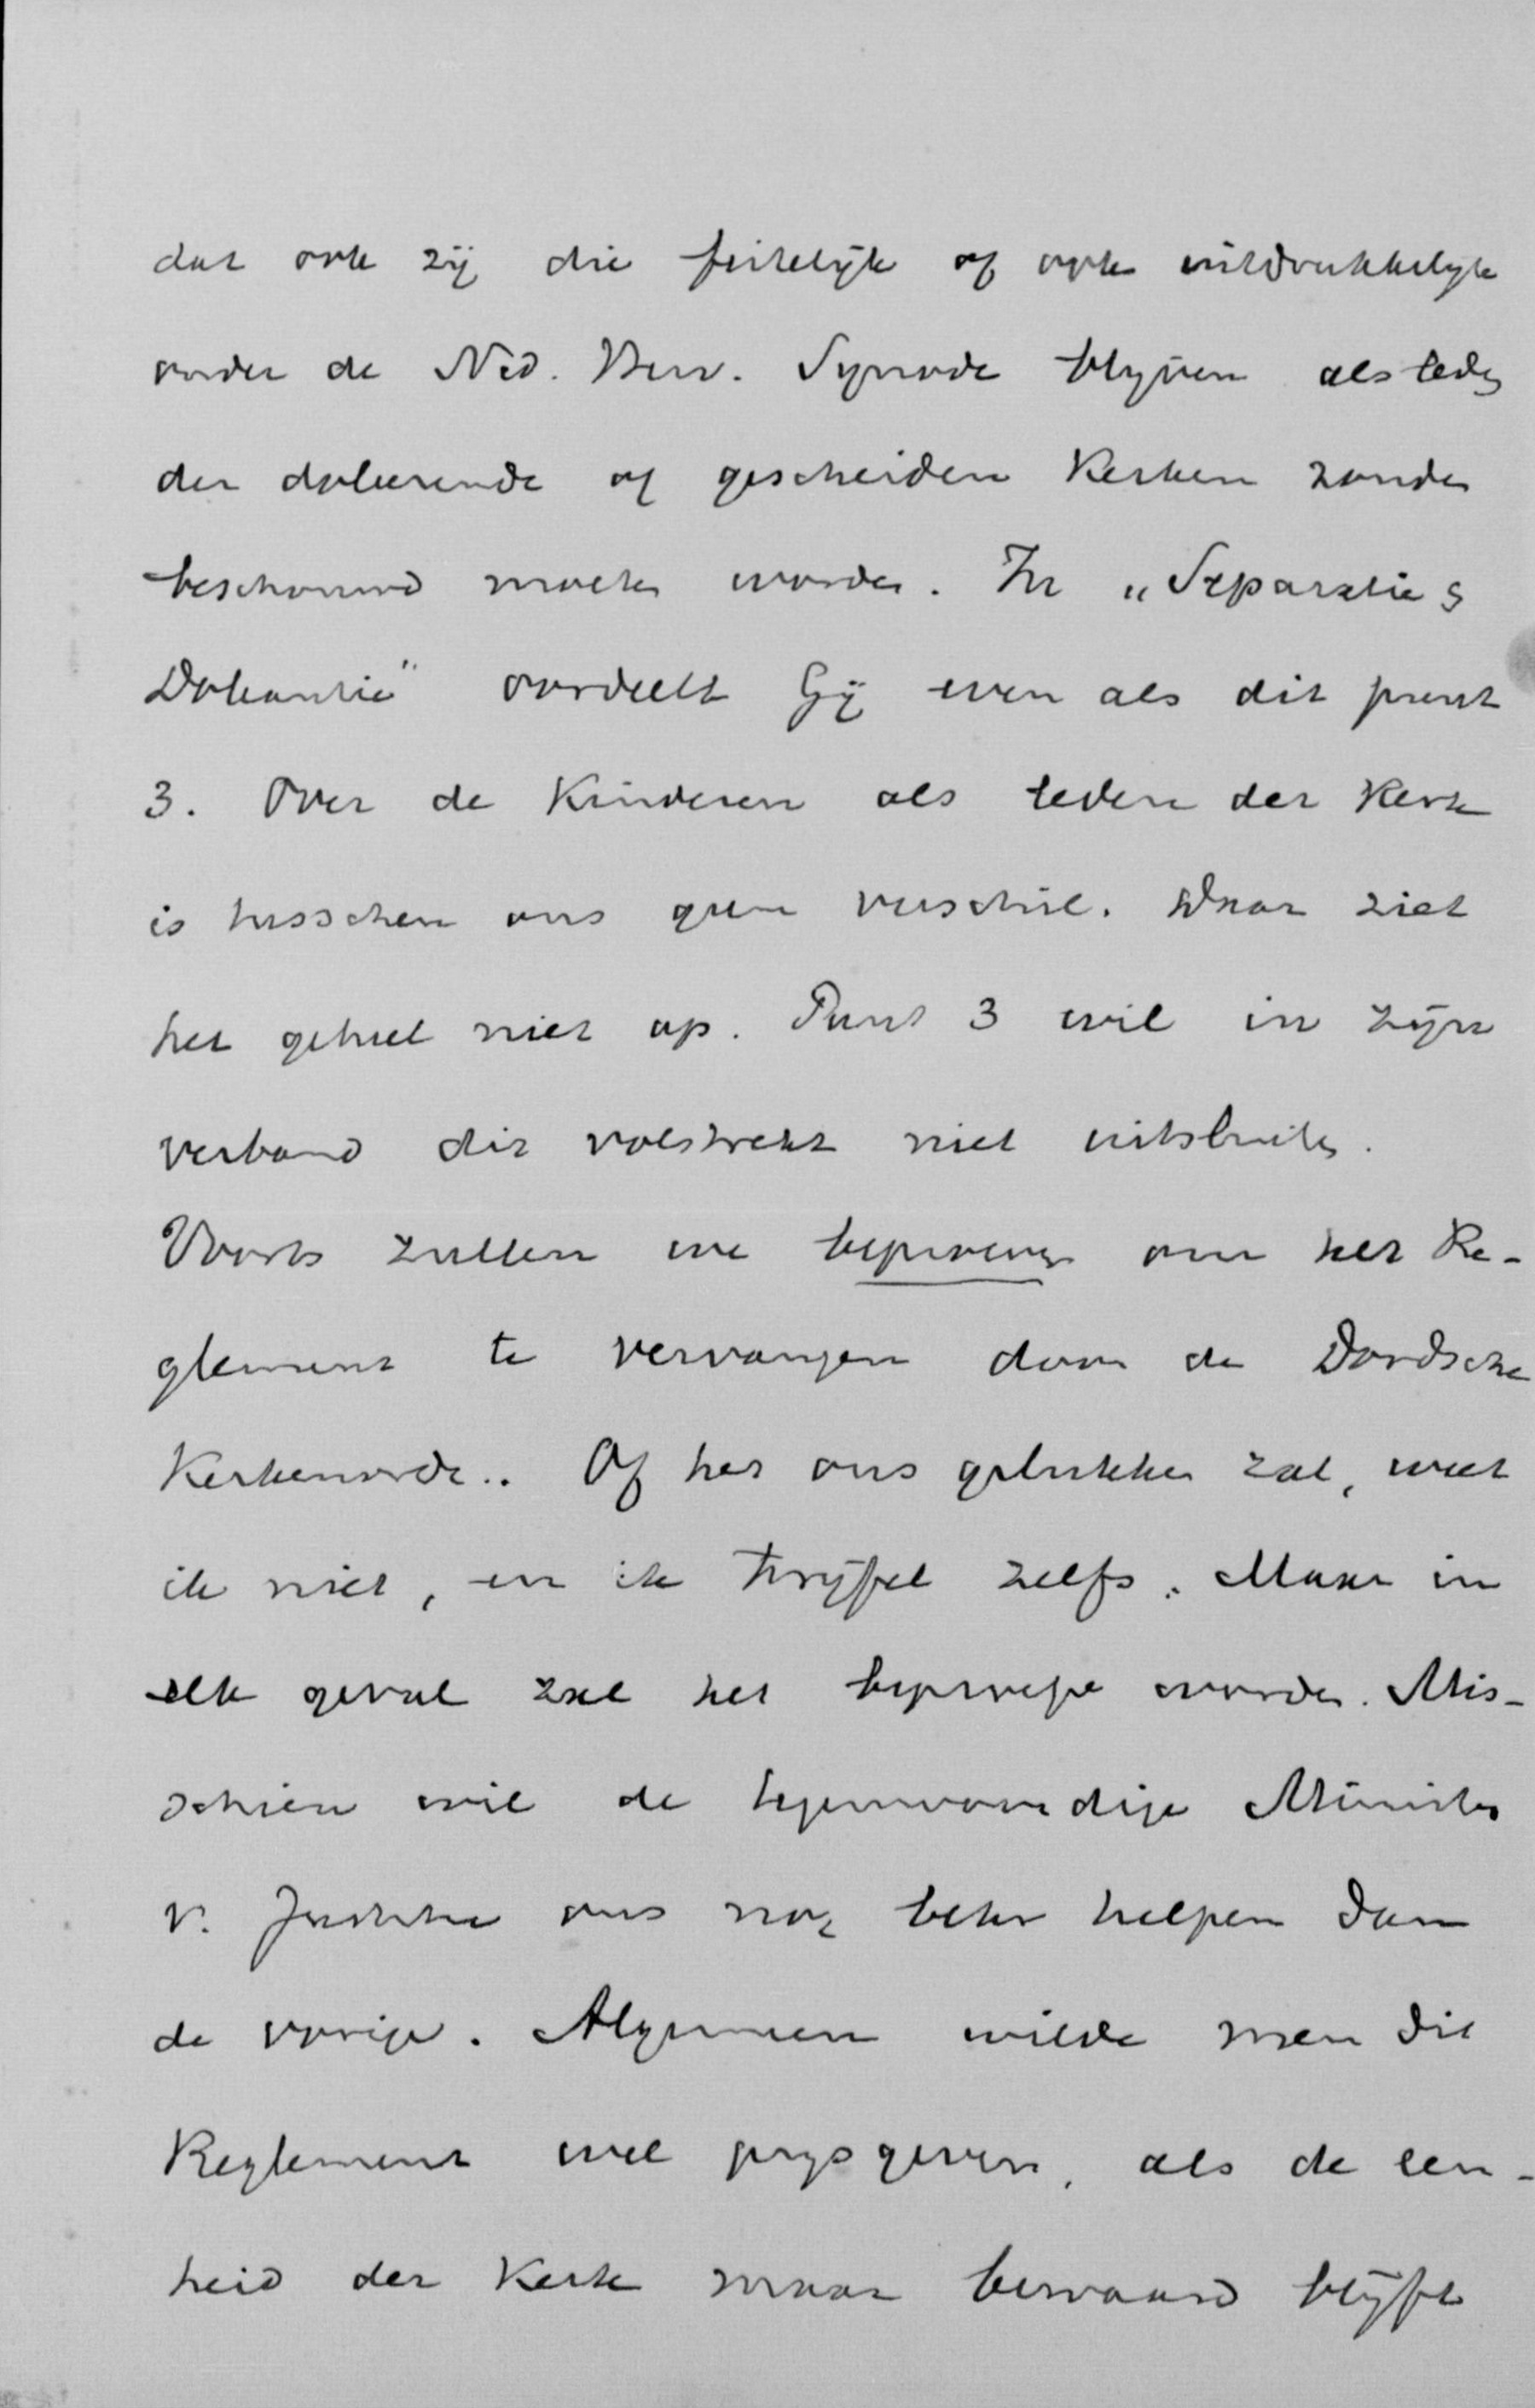 dat ook zij die feitelijk of ook uitdrukkelijk
onder de Ned. Herv. Synode blijven als leden
der doleerende of gescheiden Kerken zouden
beschouwd moeten worden. In „Separatie &
Doleantie" oordeelt Gij even als dit punt
3. Over de Kinderen als leden der Kerk
is tusschen ons geen verschil. Daar ziet
het geheel niet op. Punt 3 wil in zijn
verband dit volstrekt niet uitsluiten.
Voorts zullen we beproeven om het Re-
glement te vervangen door de Dordsche
Kerkenorde.. Of het ons gelukken zal, weet
ik niet, en ik twijfel zelfs. Maar in
elk geval zal het beproefd worden. Mis-
schien wil de tegenwoordige Minister
v. Justitie ons nog beter helpen dan
de vorige. Algemeen wilde men dit
Reglement wel prijsgeven, als de een-
heid der Kerk maar bewaard blijft